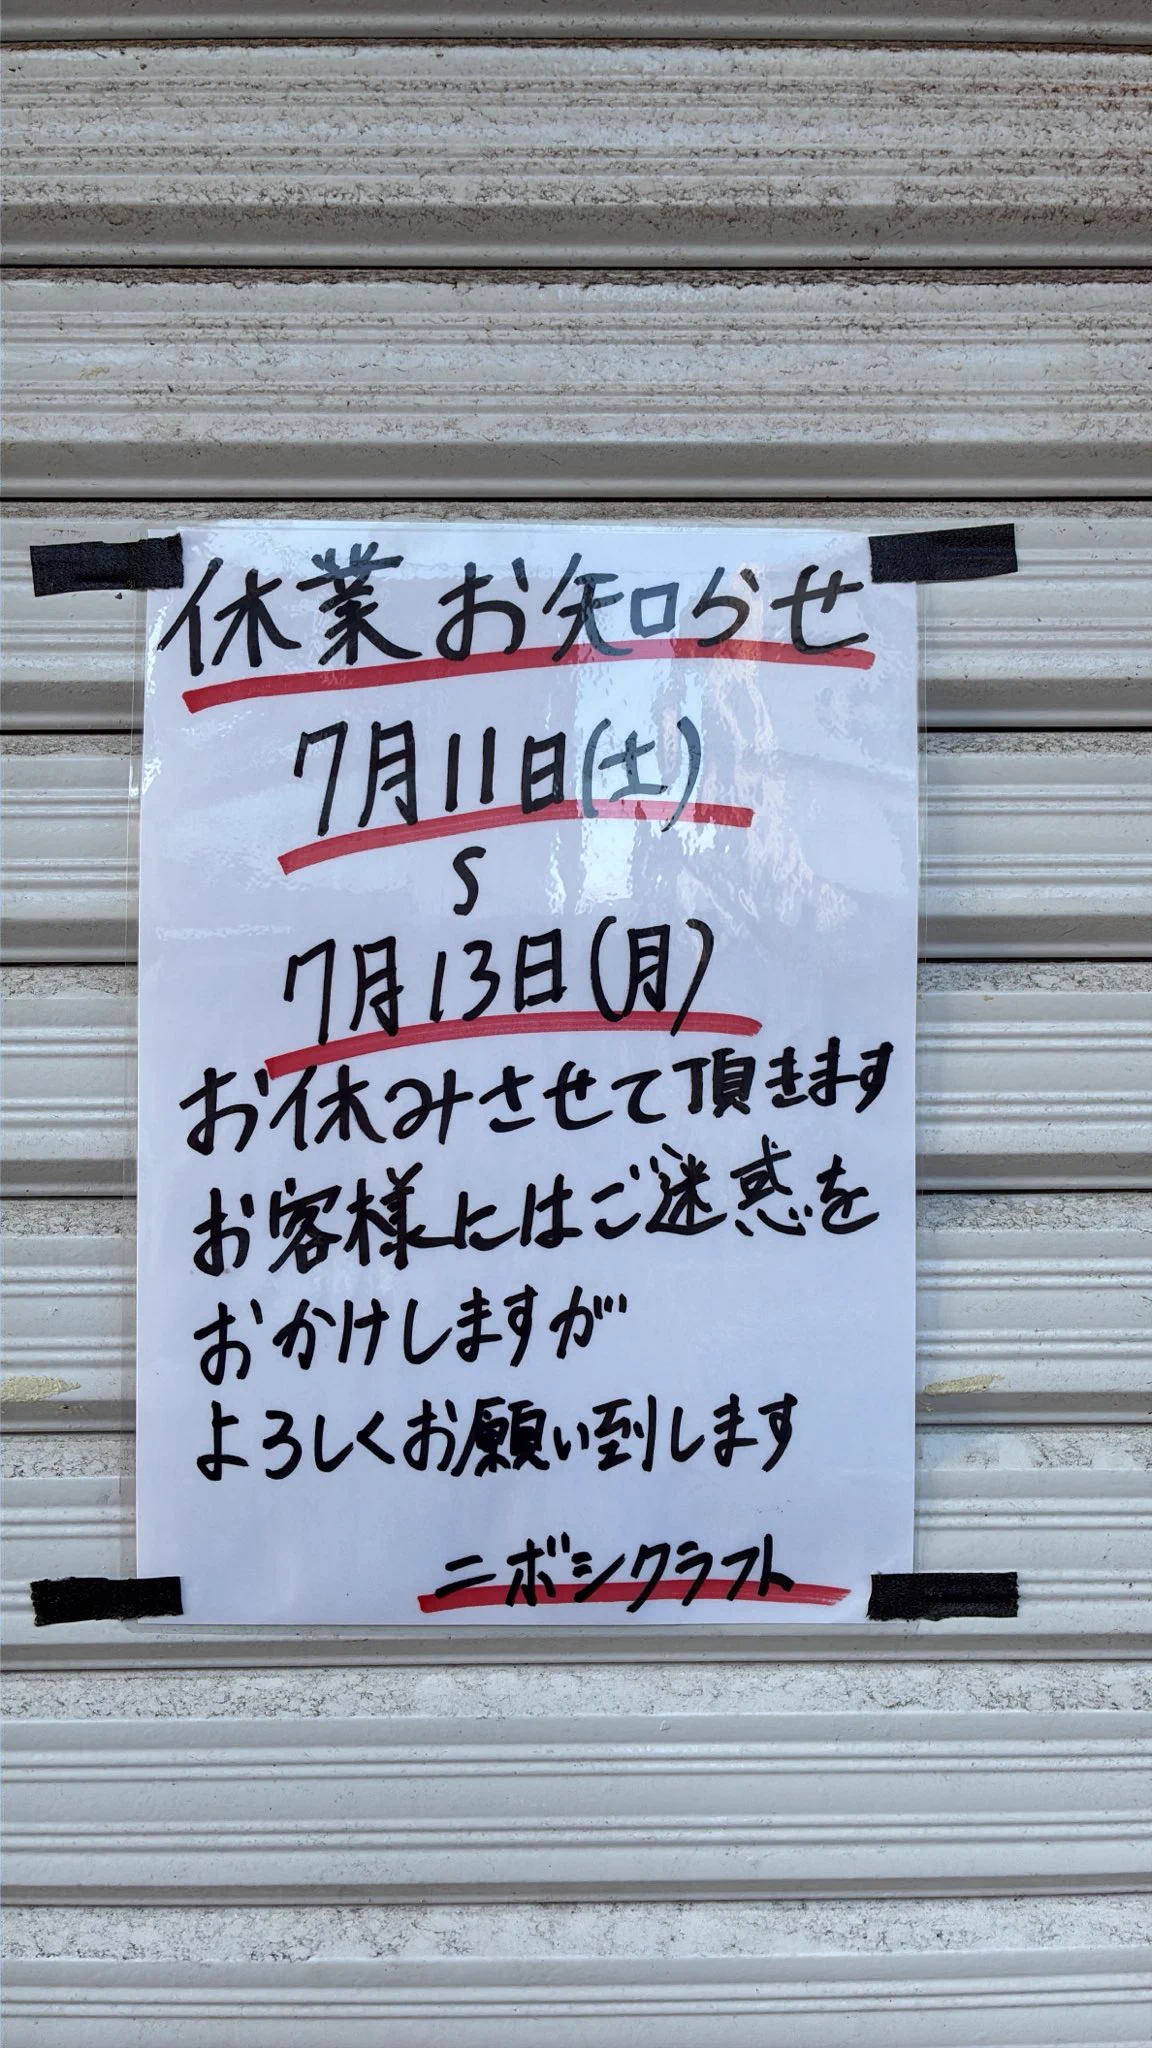 休業お知らせ
7月11日(土)
S
7月13日(月)
お休みさせて頂きます
お客様にはご迷惑を
おかけしますが
よろしくお願い到します
ニボシクラフト